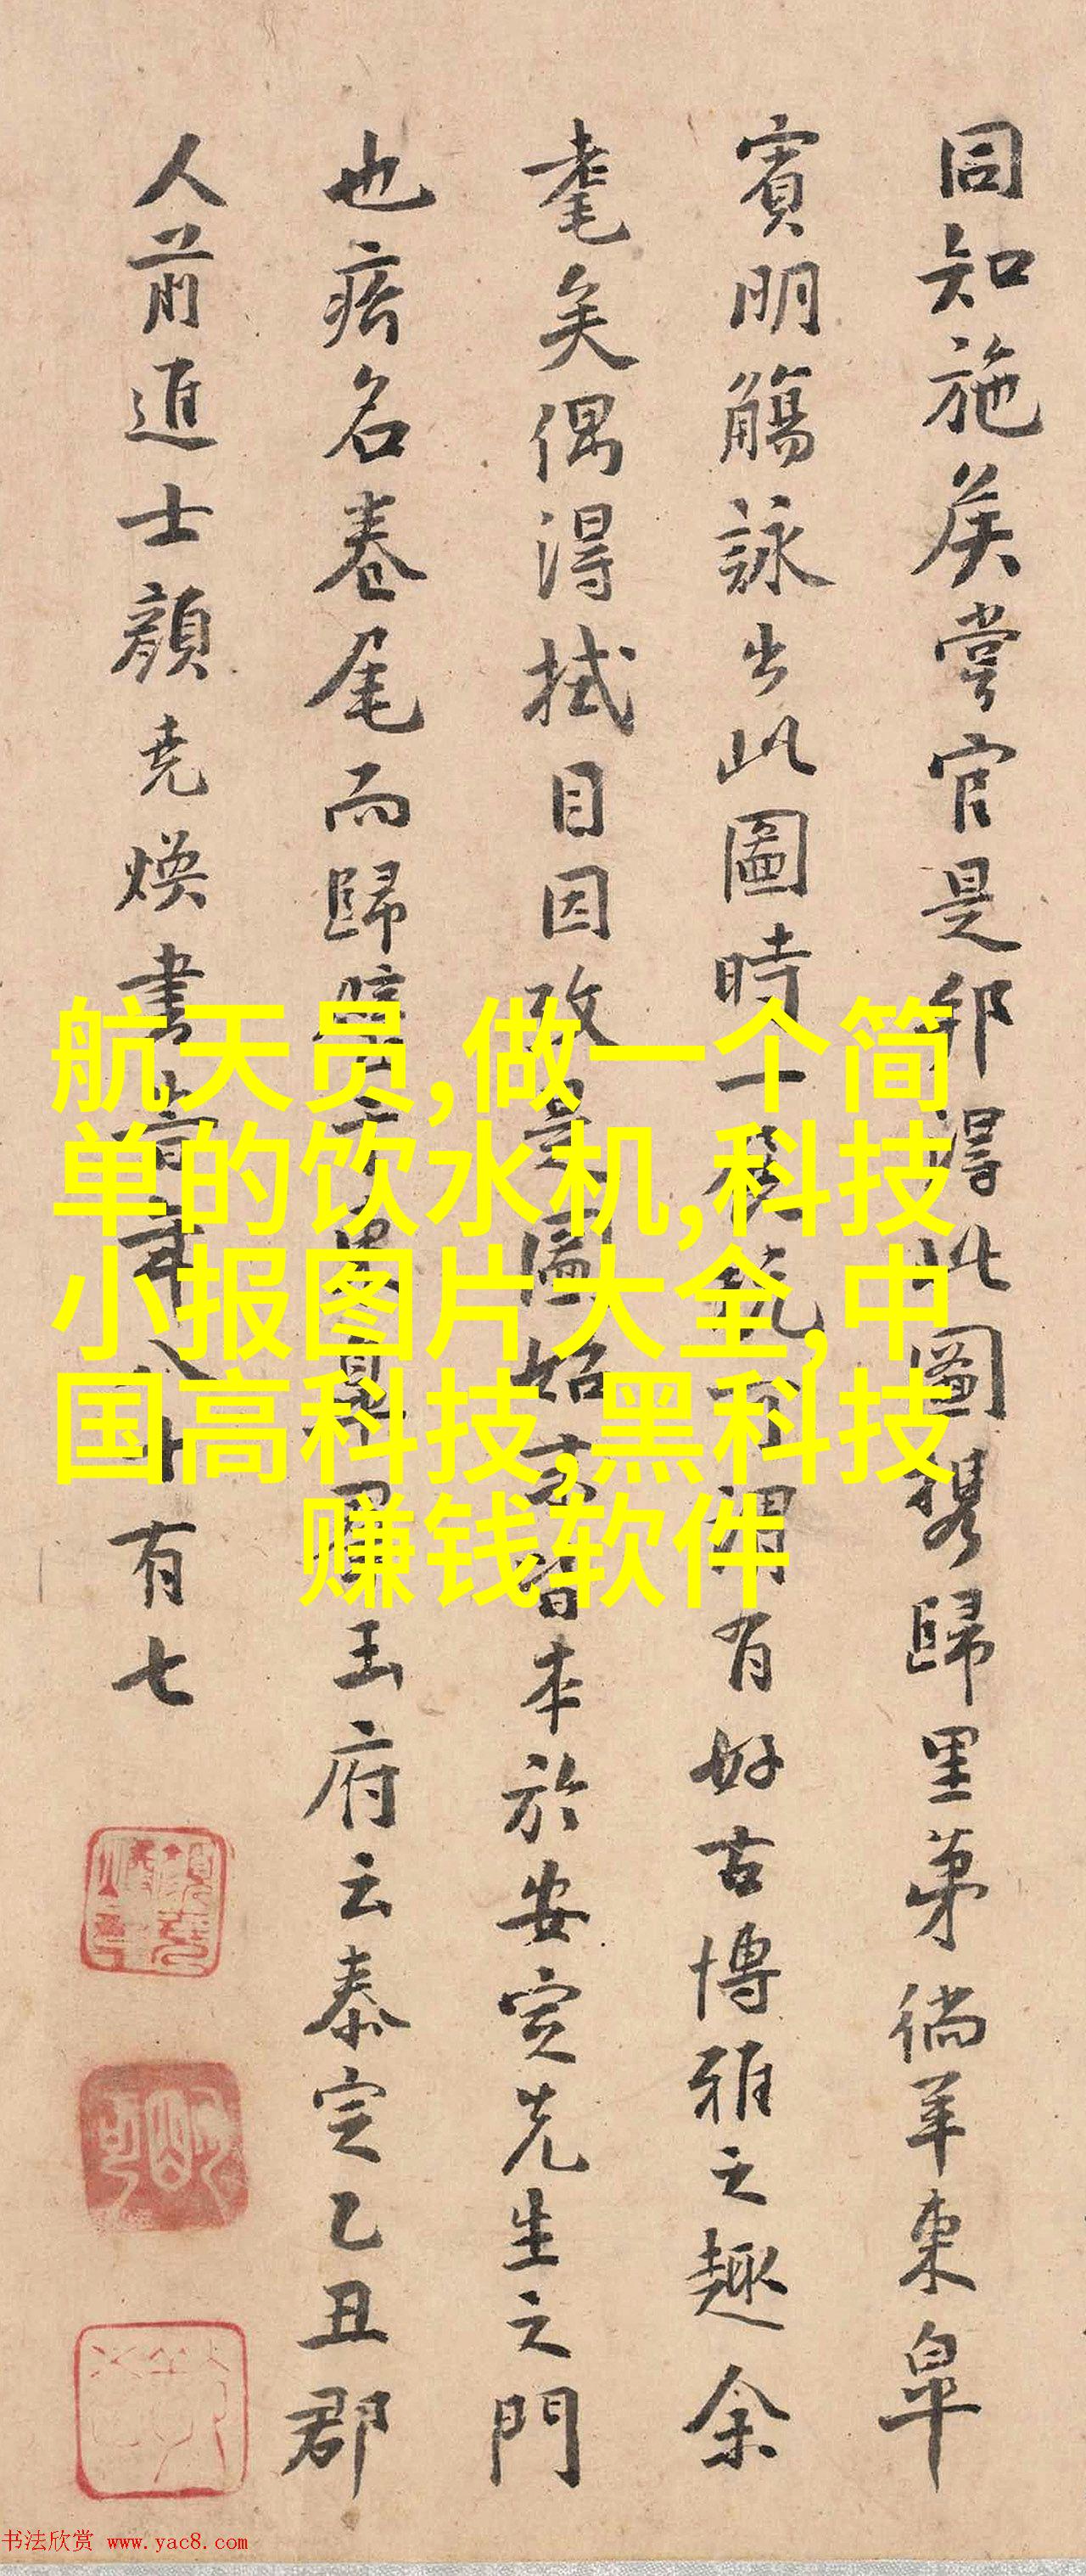 同知施侯嘗官是邦得此圖携歸里苐徜羊東皐
賓明觴詠出此圖時一
謂有好古博雅之趣余
耄矣偶得拭目因攷是圖始末皆本於安定先生之門
也㾗名卷尾而歸
玉府云泰定乙丑郡
人前進士顔堯煥書時年八十有七
航天员,做一个简
单的饮水机,科技
小报图片大全,中
国高科技,黑科技
赚钱软件
书法欣赏 www.yac8.com